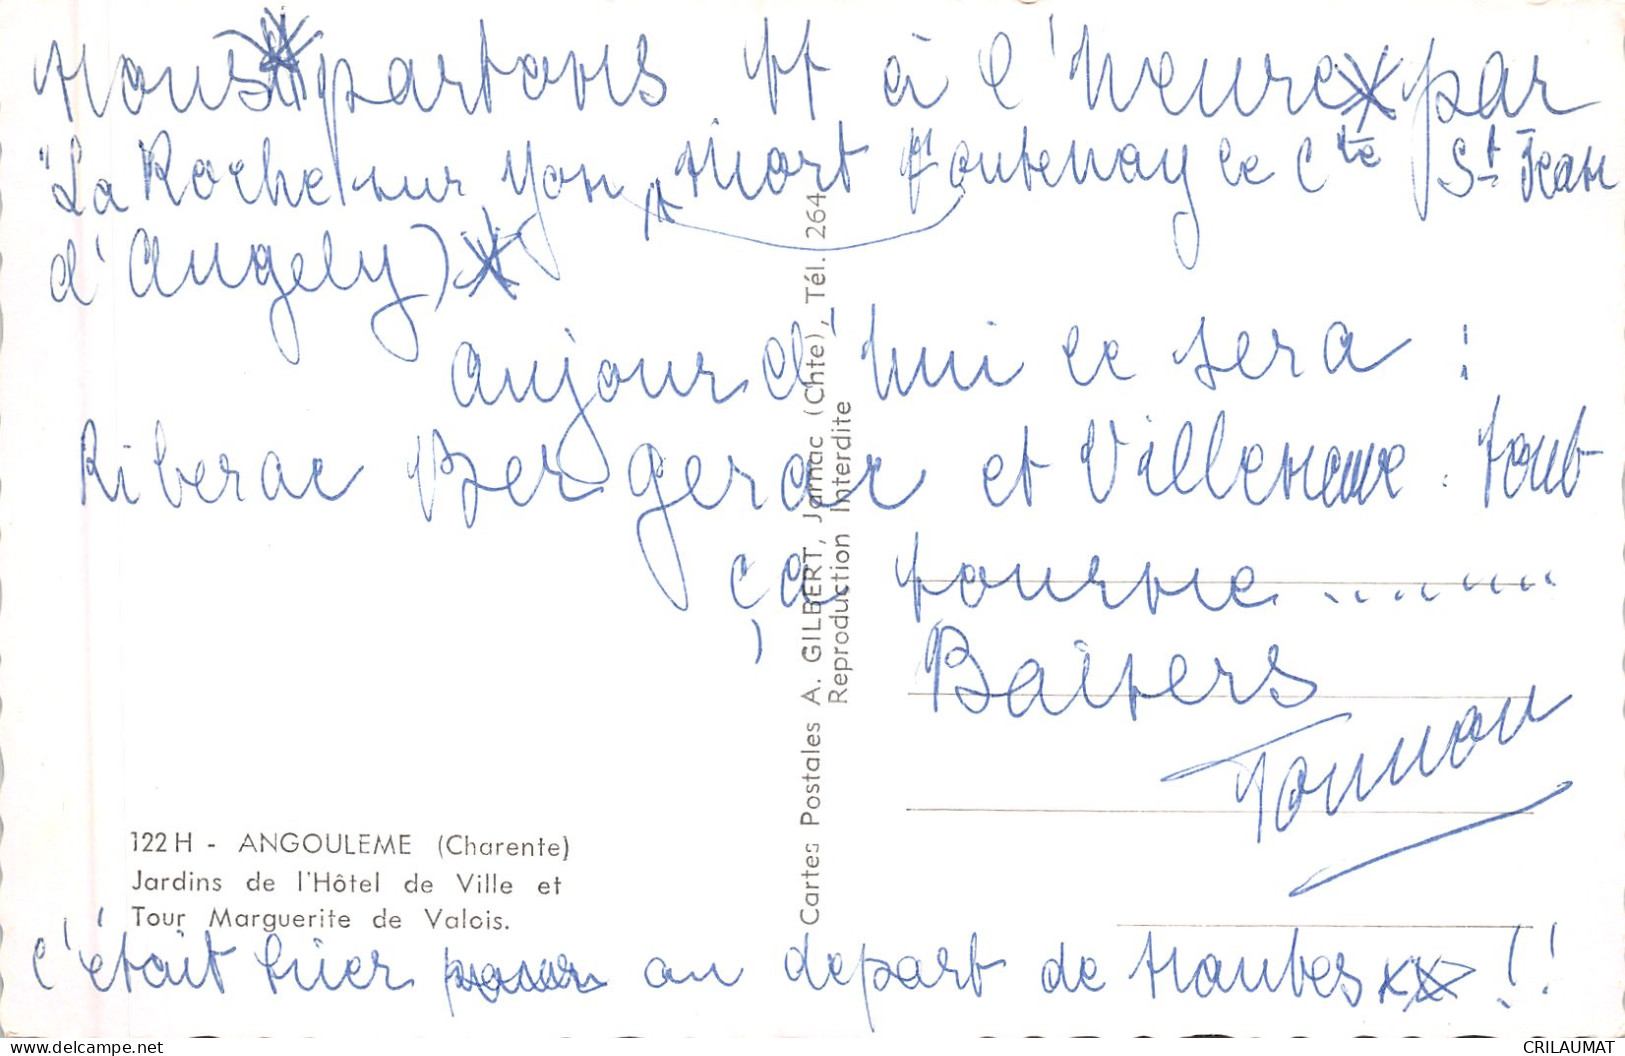 Nous partons tt à l'heure par
"La Roche sur Yon, Niort Fontenay le Cte St Jean
d'Angely)
aujourd'hui ce sera :
Riberac Bergerac et Villeneuve. tout
ça tourne.........
Baisers
122 H - ANGOULEME (Charente)
Jardins de l'Hôtel de Ville et
Tour Marguerite de Valois.
c'était hier au depart de Nantes !!
Cartes Postales A. GILBERT, Jarnac (Chte), Tél. 264
Reproduction Interdite
CRILAUMAT